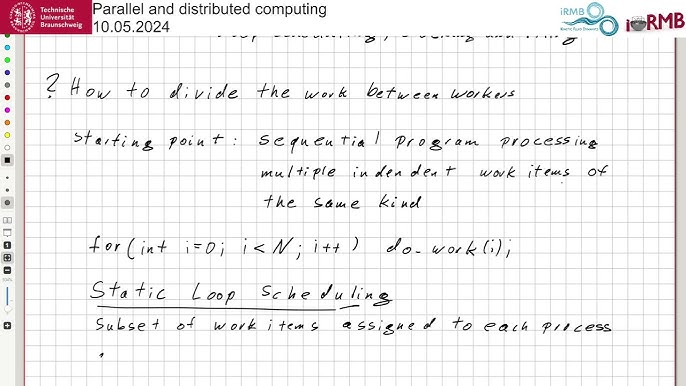 Technische
Universität
Braunschweig
Parallel and distributed computing
10.05.2024
iRMB
iRMB
? How to divide the work between workers
starting point: sequential program processing
multiple indendent work items of
the same kind
for(int i=0; i<N; i++) do-work(i);
Static Loop Scheduling
Subset of work items assigned to each process